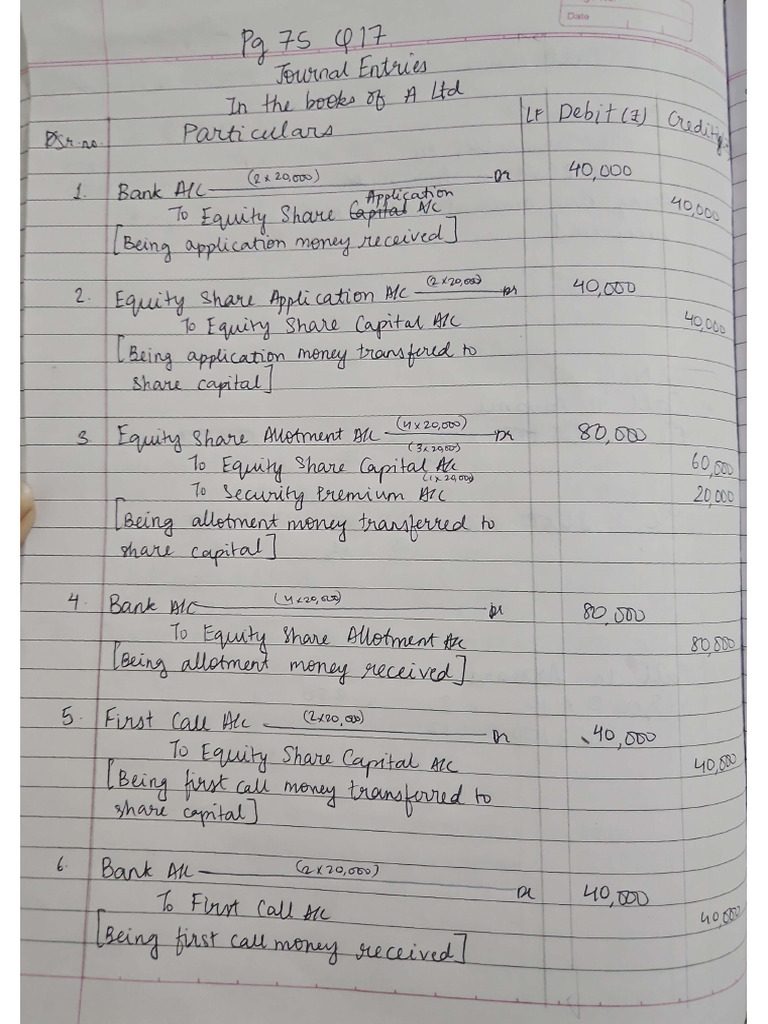 Date
Pg 75 Q17
Journal Entries
In the books of A Ltd
Sr.no. Particulars LF Debit (₹) Credit
1. Bank A/C (2 x 20,000) Dr 40,000
To Equity Share Application A/C 40,000
[Being application money received]
2. Equity Share Application A/C (2 x 20,000) Dr 40,000
To Equity Share Capital A/C 40,000
[Being application money transfered to
share capital]
3 Equity Share Allotment A/C (4 x 20,000) Dr 80,000
To Equity Share Capital A/C (3 x 20,000) 60,000
To Security Premium A/C (1 x 20,000) 20,000
[Being allotment money transferred to
share capital]
4. Bank A/C (4 x 20,000) Dr 80,000
To Equity Share Allotment A/c 80,000
[Being allotment money received]
5. First Call A/c (2 x 20,000) Dr 40,000
To Equity Share Capital A/C 40,000
[Being first call money transferred to
share capital]
6. Bank A/c (2 x 20,000) Dr 40,000
To First Call A/c 40,000
[Being first call money received]